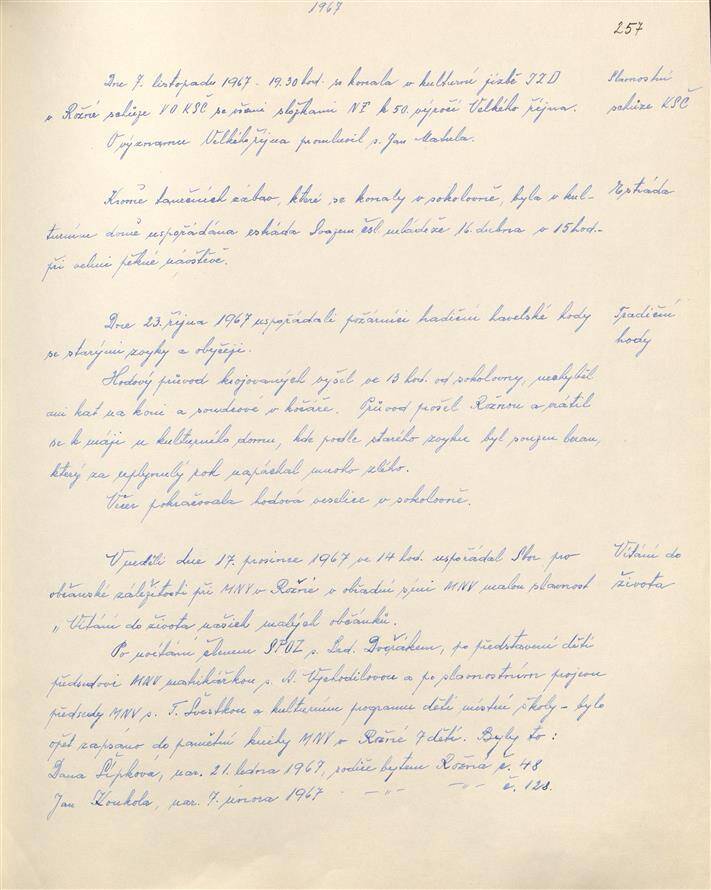 1967
257
Dne 7. listopadu 1967 - 19.30 hod. se konala v kulturní jizbě JZD
v Rožné schůze VO KSČ se všemi složkami NF k 50. výročí Velkého října.
O významu Velkého října promluvil s. Jan Matula.
Slavnostní
schůze KSČ
Kromě tanečních zábav, které se konaly v sokolovně, byla v kul-
turním domě uspořádána estráda Svazem čsl. mládeže 16. dubna v 15 hod. -
při velmi pěkné návštěvě.
Estráda
Dne 23. října 1967 uspořádali požárníci tradiční havelské hody
se starými zvyky a obyčeji.
Tradiční
hody
Hodový průvod krojovaných vyšel ve 13 hod. od sokolovny, nechyběl
ani kat na koni a soudcové v kočáře. Průvod prošel Rožnou a vrátil
se k máji u kulturního domu, kde podle starého zvyku byl souzen beran,
který za uplynulý rok napáchal mnoho zlého.
Večer pokračovala hodová veselice v sokolovně.
V neděli dne 17. prosince 1967 ve 14 hod. uspořádal Sbor pro
občanské záležitosti při MNV v Rožné v obřadní síni MNV malou slavnost
„ Vítání do života našich malých občánků.
Vítání do
života
Po uvítání členem SPOZ s. Lad. Dvořákem, po představení dětí
předsedovi MNV matrikářkou s. A. Vychodilovou a po slavnostním projevu
předsedy MNV s. T. Švestkou a kulturním programu dětí místní školy - bylo
opět zapsáno do pamětní knihy MNV v Rožné 7 dětí. Byly to :
Dana Šípková, nar. 21. ledna 1967, rodiče bytem Rožná č. 48
Jan Koukola, nar. 7. února 1967 - — „ — — „ — č. 128.